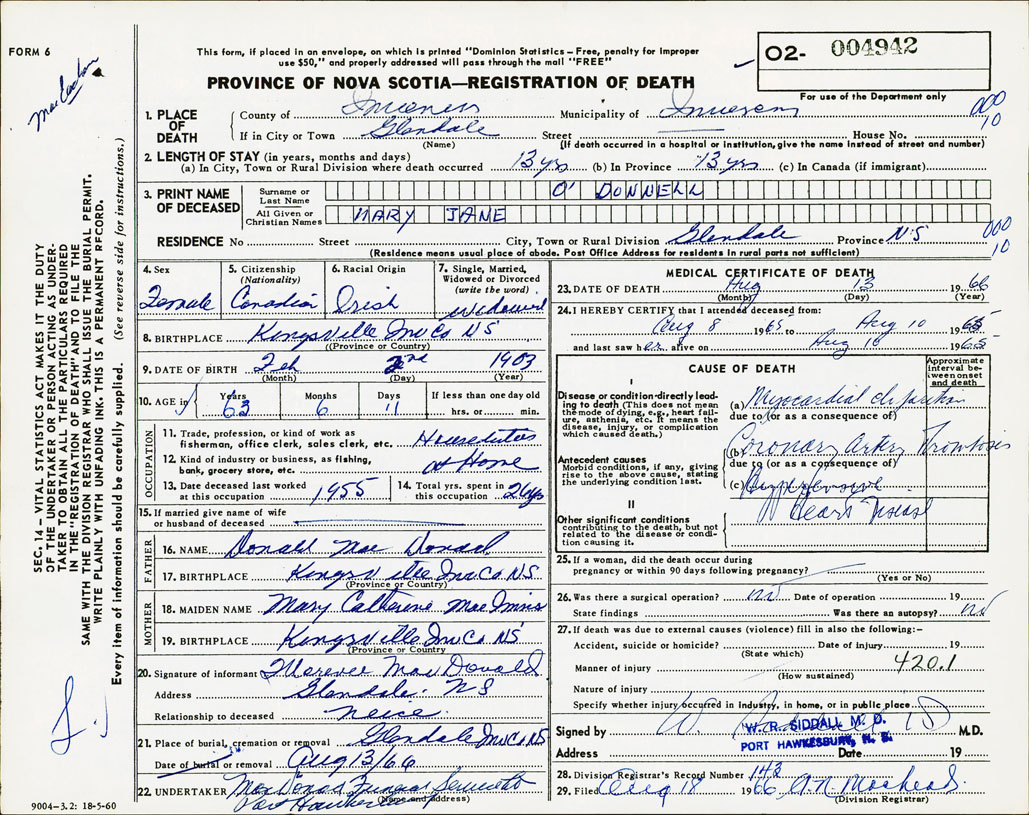 FORM 6
This form, if placed in an envelope, on which is printed "Dominion Statistics – Free, penalty for improper
use $50," and properly addressed will pass through the mail "FREE"
PROVINCE OF NOVA SCOTIA—REGISTRATION OF DEATH
O2- 004942
For use of the Department only
SEC. 14 – VITAL STATISTICS ACT MAKES IT THE DUTY
OF THE UNDERTAKER OR PERSON ACTING AS UNDER-
TAKER TO OBTAIN ALL THE PARTICULARS REQUIRED
IN THE "REGISTRATION OF DEATH" AND TO FILE THE
SAME WITH THE DIVISION REGISTRAR WHO SHALL ISSUE THE BURIAL PERMIT.
WRITE PLAINLY WITH UNFADING INK. THIS IS A PERMANENT RECORD.
Every item of information should be carefully supplied. (See reverse side for instructions.)
1. PLACE OF DEATH
County of Inverness Municipality of Inverness 000 10
If in City or Town Glendale Street House No.
(Name) (If death occurred in a hospital or institution, give the name instead of street and number)
2. LENGTH OF STAY (in years, months and days)
(a) In City, Town or Rural Division where death occurred 13 yrs (b) In Province 13 yrs (c) In Canada (if immigrant)
3. PRINT NAME OF DECEASED
Surname or Last Name O' DONNELL
All Given or Christian Names MARY JANE
RESIDENCE No Street City, Town or Rural Division Glendale Province N.S 000 10
(Residence means usual place of abode. Post Office Address for residents in rural parts not sufficient)
4. Sex Female
5. Citizenship (Nationality) Canadian
6. Racial Origin Irish
7. Single, Married, Widowed or Divorced (write the word) Widowed
8. BIRTHPLACE Kingsville Inv Co NS
(Province or Country)
9. DATE OF BIRTH Feb 2nd 1903
(Month) (Day) (Year)
10. AGE in Years 63 Months 6 Days 11 If less than one day old hrs. or min.
OCCUPATION
11. Trade, profession, or kind of work as
fisherman, office clerk, sales clerk, etc. Houseduties
12. Kind of industry or business, as fishing,
bank, grocery store, etc. at Home
13. Date deceased last worked
at this occupation 1955
14. Total yrs. spent in
this occupation
15. If married give name of wife
or husband of deceased
FATHER
16. NAME Donald Mac Donald
17. BIRTHPLACE Kingsville Inv Co NS
(Province or Country)
MOTHER
18. MAIDEN NAME Mary Catherine MacInnis
19. BIRTHPLACE Kingsville Inv Co NS
Province or Country)
20. Signature of informant MacDonald
Address Glendale. NS
Relationship to deceased neice
21. Place of burial, cremation or removal Glendale Inv Co NS
Date of burial or removal Aug 13/66
22. UNDERTAKER MacDonald Funeral
(Name and address)
Port Hawkesbury
9004–3.2: 18-5-60
MEDICAL CERTIFICATE OF DEATH
23. DATE OF DEATH Aug 13 1966
(Month) (Day) (Year)
24. I HEREBY CERTIFY that I attended deceased from:
Aug 8 1965 to Aug 10 1965
and last saw her alive on Aug 10 1965
CAUSE OF DEATH
Approximate interval between onset and death
I
Disease or condition directly lead-
ing to death (This does not mean
the mode of dying, e.g., heart fail-
ure, asthenia, etc. It means the
disease, injury, or complication
which caused death.)
(a) Myocardial
due to (or as a consequence of)
Antecedent causes
Morbid conditions, if any, giving
rise to the above cause, stating
the underlying condition last.
(b) Coronary artery
due to (or as a consequence of)
(c) Hypertensive
Heart Disease
II
Other significant conditions
contributing to the death, but not
related to the disease or condi-
tion causing it.
25. If a woman, did the death occur during
pregnancy or within 90 days following pregnancy?
(Yes or No)
26. Was there a surgical operation? no Date of operation 19
State findings Was there an autopsy? no
27. If death was due to external causes (violence) fill in also the following:–
Accident, suicide or homicide? Date of injury 19
(State which)
Manner of injury 420.1
(How sustained)
Nature of injury
Specify whether injury occurred in industry, in home, or in public place
Signed by W. R. SIDDALL M. D. M.D.
Address PORT HAWKESBURY, N. S. Date 19
28. Division Registrar's Record Number 143
29. Filed Aug 18 1966
(Division Registrar)